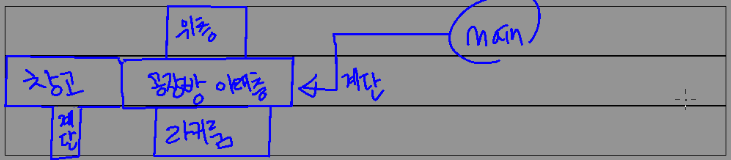 위층
main
창고
공장방 아래층
계단
계단
라커룸